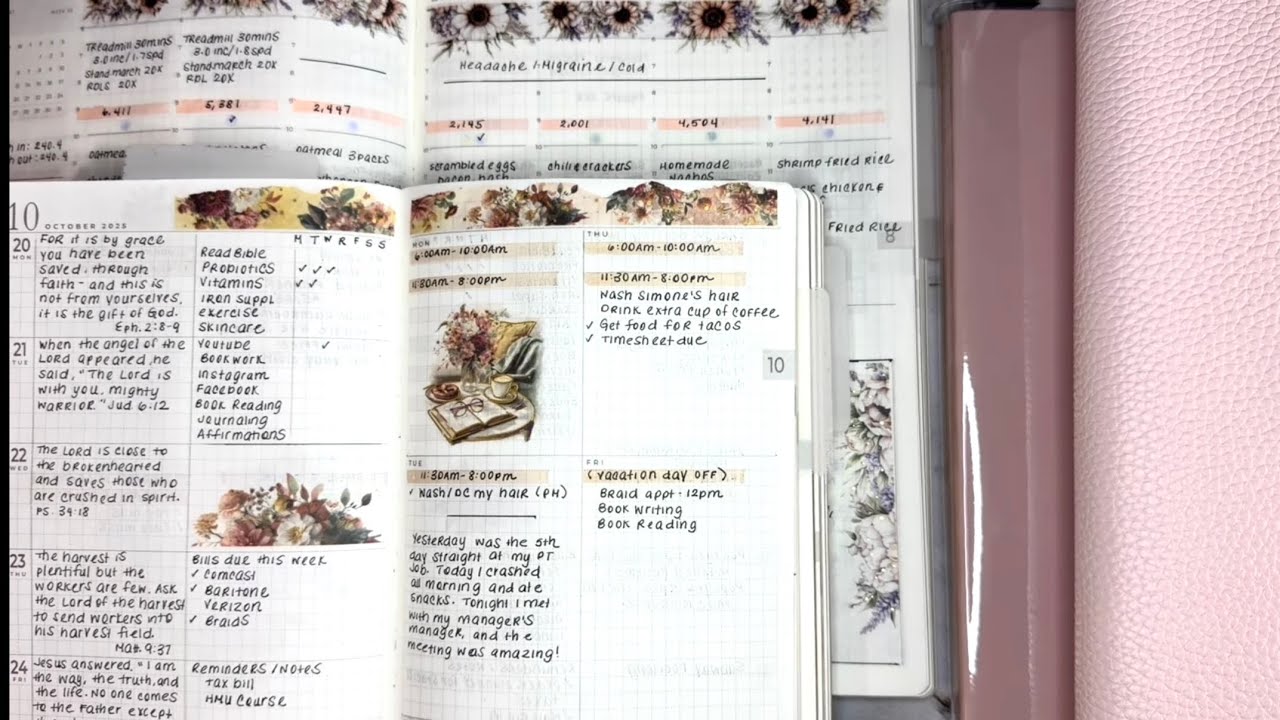 Treadmill 30mins
3.0 inc/1.7spd
Stand march 20x
RDLS 20x
6,411
oatmeal
Treadmill 30mins
3.0 inc/1.8spd
Stand march 20x
RDL 20x
5,381
2,447
oatmeal 3packs
h in: 240.4
h out: 240.4
Headache / Migraine / Cold
2,145
scrambled eggs
2,001
chili crackers
4,504
Homemade
nachos
4,141
shrimp fried rice
chicken &
Fried Rice
8
10
OCTOBER 2025
20
MON
For it is by grace
you have been
saved, through
faith - and this is
not from yourselves,
it is the gift of God.
Eph. 2:8-9
21
TUE
When the angel of the
Lord appeared, he
said, "The Lord is
with you, mighty
warrior." Jud 6:12
22
WED
The Lord is close to
the brokenhearted
and saves those who
are crushed in spirit.
PS. 34:18
23
THU
The harvest is
plentiful but the
workers are few. Ask
the Lord of the harvest
to send workers into
his harvest field.
Mat. 9:37
24
FRI
Jesus answered, "I am
the way, the truth, and
the life. No one comes
to the Father except
M T W R F S S
Read Bible
Probiotics ✓ ✓ ✓
Vitamins ✓ ✓
Iron Suppl
exercise
skincare
Youtube ✓
Bookwork
Instagram
Facebook
Book Reading
Journaling
Affirmations
Bills due this week
✓ Comcast
✓ Baritone
Verizon
✓ Braids
Reminders / Notes
Tax bill
HMU Course
MON
6:00AM - 10:00AM
11:30AM - 8:00pm
TUE
11:30AM - 8:00pm
✓ Wash/DC my hair (PH)
Yesterday was the 5th
day straight at my PT
job. Today I crashed
all morning and ate
snacks. Tonight I met
with my manager's
manager, and the
meeting was amazing!
THU
6:00AM - 10:00AM
11:30AM - 8:00pm
Wash Simone's hair
Drink extra cup of coffee
✓ Get food for tacos
✓ Timesheet due
10
FRI
(vacation day OFF)
Braid appt - 12pm
Book Writing
Book Reading